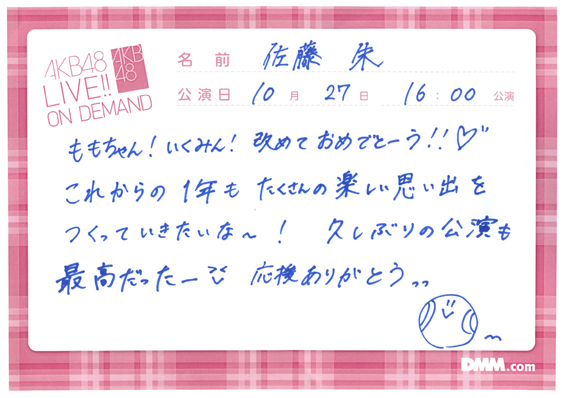 AKB48
LIVE!!
ON DEMAND
AKB
48
名前 佐藤 朱
公演日 10月 27日 16:00 公演
ももちゃん！いくみん！改めておめでとーう！！♡
これからの1年もたくさんの楽しい思い出を
つくっていきたいな〜！ 久しぶりの公演も
最高だったー 応援ありがとう
DMM.com